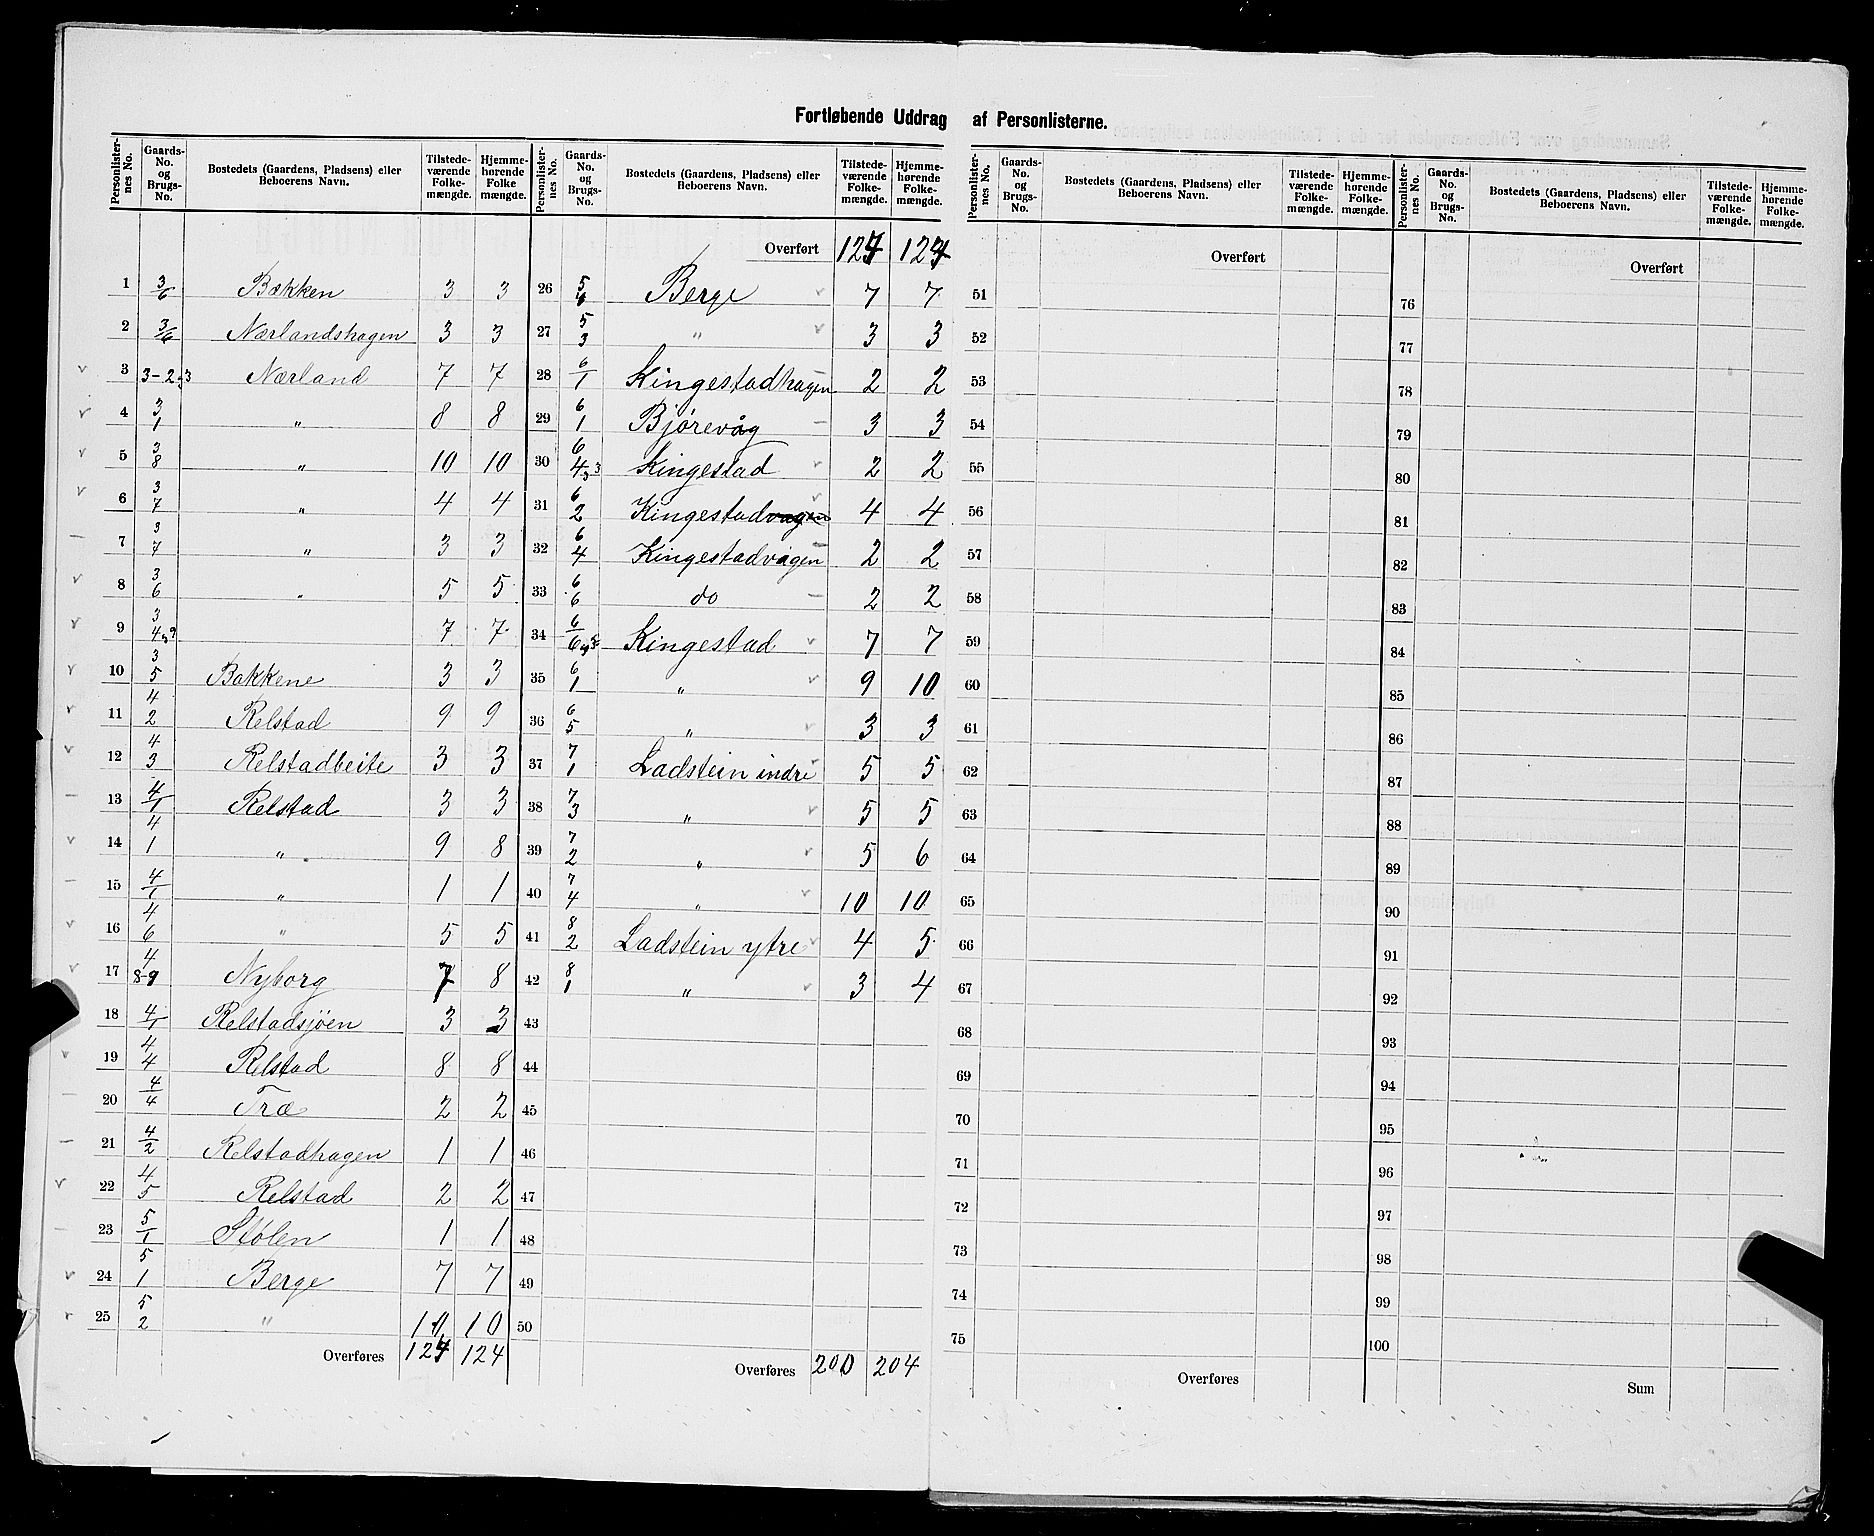 Fortløbende Uddrag af Personlisterne.
Personlister-nes No. | Gaards-No. og Brugs-No. | Bostedets (Gaardens, Pladsens) eller Beboerens Navn. | Tilstede-værende Folke-mængde. | Hjemme-hørende Folke mængde.
1 3/6 Bækken 3 3
2 3/6 Nærlandshagen 3 3
3 3-2,3 Nærland 7 7
4 3/1 " 8 8
5 3/8 " 10 10
6 3/7 " 4 4
7 3/7 " 3 3
8 3/6 " 5 5
9 3/4,9 7 7
10 3/5 Bakkene 3 3
11 4/2 Relstad 9 9
12 4/3 Relstadbeite 3 3
13 4/1 Relstad 3 3
14 4/1 " 9 8
15 4/1 " 1 1
16 4/6 " 5 5
17 4/8-9 Nyborg 7 8
18 4/1 Relstadsjöen 3 3
19 4/4 Relstad 8 8
20 4/4 Træ 2 2
21 4/2 Relstadhagen 1 1
22 4/5 Relstad 2 2
23 5/1 Stølen 1 1
24 5/1 Berge 7 7
25 5/2 " 10 10
Overføres 124 124
Personlister-nes No. | Gaards-No. og Brugs-No. | Bostedets (Gaardens, Pladsens) eller Beboerens Navn. | Tilstede-værende Folke-mængde. | Hjemme-hørende Folke-mængde.
Overført 124 124
26 5/4 Berge 7 7
27 5/3 " 3 3
28 6/1 Kingestadhagen 2 2
29 6/1 Bjørevåg 3 3
30 6/4,3 Kingestad 2 2
31 6/2 Kingestadvagen 4 4
32 6/4 Kingestadvågen 2 2
33 6/6 do 2 2
34 6/6,3 Kingestad 7 7
35 6/1 " 9 10
36 6/5 " 3 3
37 7/1 Ladstein indre 5 5
38 7/3 " 5 5
39 7/2 " 5 6
40 7/4 " 10 10
41 8/2 Ladstein ytre 4 5
42 8/1 " 3 4
43
44
45
46
47
48
49
50
Overføres 200 204
Personlister-nes No. | Gaards-No. og Brugs-No. | Bostedets (Gaardens, Pladsens) eller Beboerens Navn. | Tilstede-værende Folke-mængde. | Hjemme-hørende Folke-mængde.
Overført
51
52
53
54
55
56
57
58
59
60
61
62
63
64
65
66
67
68
69
70
71
72
73
74
75
Overføres
Personlister-nes No. | Gaards-No. og Brugs-No. | Bostedets (Gaardens, Pladsens) eller Beboerens Navn. | Tilstede-værende Folke-mængde. | Hjemme-hørende Folke-mængde.
Overført
76
77
78
79
80
81
82
83
84
85
86
87
88
89
90
91
92
93
94
95
96
97
98
99
100
Sum